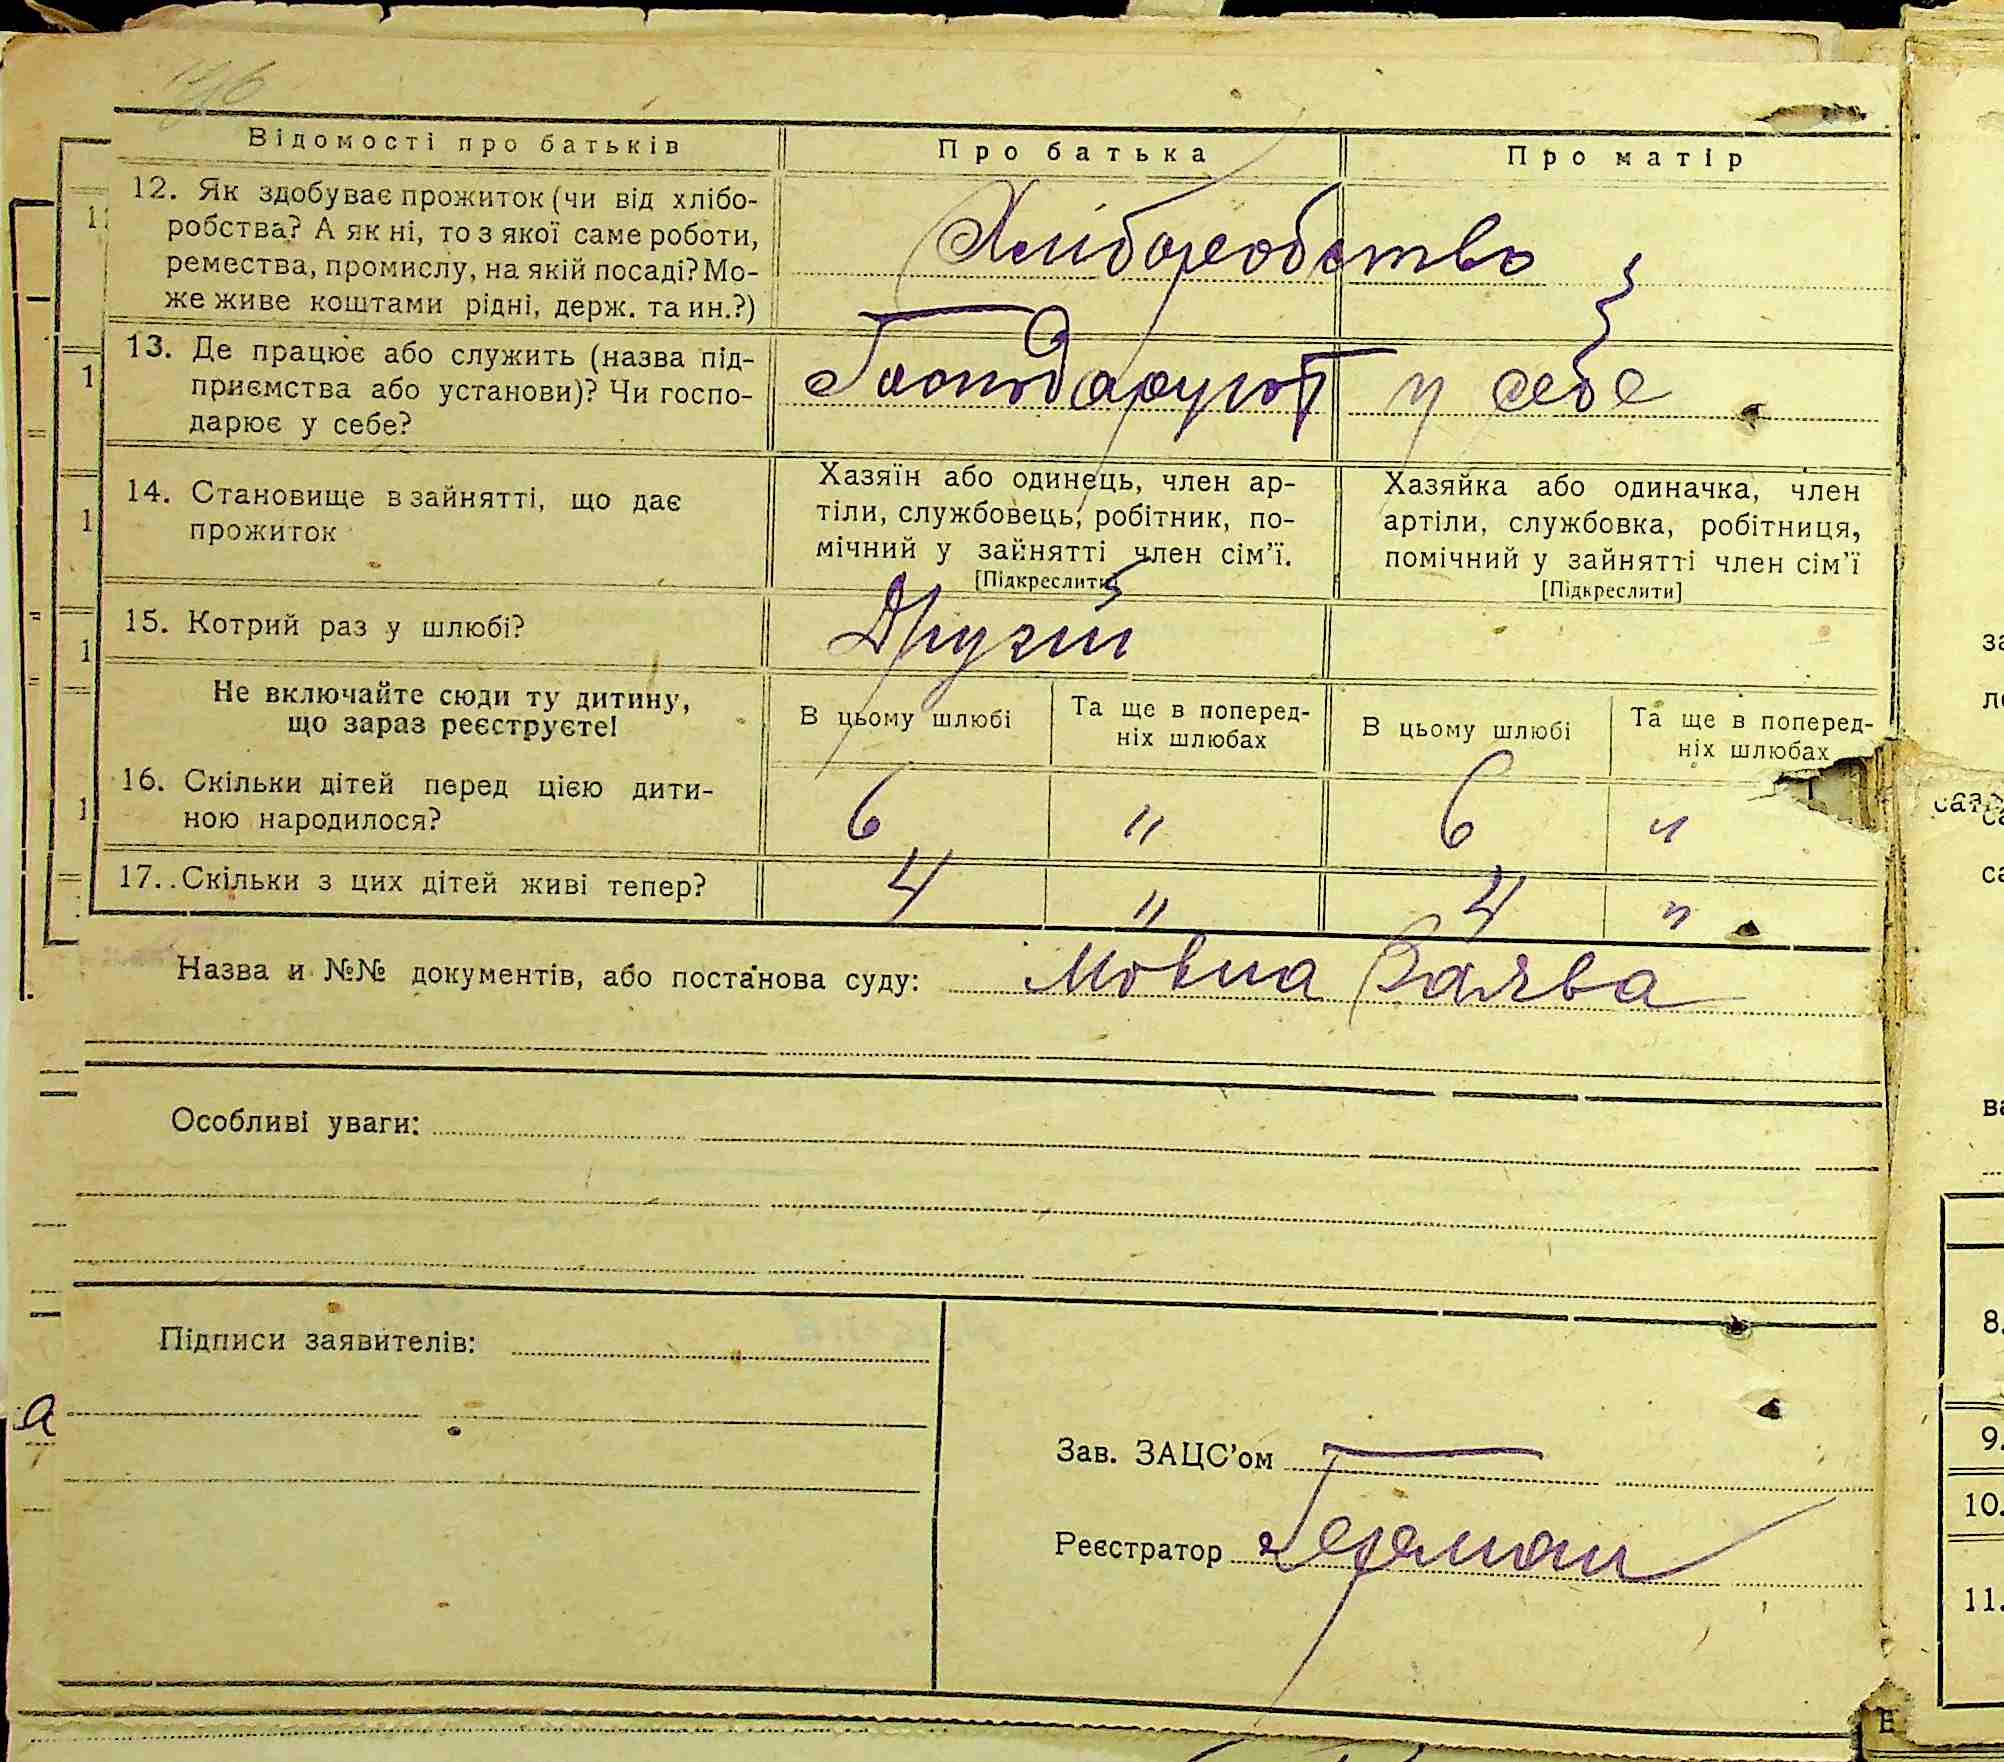 Відомості про батьків
Про батька
Про матір
12. Як здобуває прожиток (чи від хлібо-
робства? А як ні, то з якої саме роботи,
ремества, промислу, на якій посаді? Мо-
же живе коштами рідні, держ. та ин.?)
Хліборобство
13. Де працює або служить (назва під-
приємства або установи)? Чи госпо-
дарює у себе?
Господарюют у себе
14. Становище в зайнятті, що дає
прожиток
Хазяїн або одинець, член ар-
тіли, службовець, робітник, по-
мічний у зайнятті член сім’ї.
[Підкреслити]
Хазяйка або одиначка, член
артіли, службовка, робітниця,
помічний у зайнятті член сім’ї
[Підкреслити]
15. Котрий раз у шлюбі?
Другий
Не включайте сюди ту дитину,
що зараз реєструєте!
В цьому шлюбі
Та ще в поперед-
ніх шлюбах
В цьому шлюбі
Та ще в поперед-
ніх шлюбах
16. Скільки дітей перед цією дити-
ною народилося?
6 " 6 "
17. Скільки з цих дітей живі тепер?
4 " 4 "
Назва и №№ документів, або постанова суду: Мовна Заява
Особливі уваги:
Підписи заявителів:
Зав. ЗАЦС’ом
Реєстратор Герман
8.
9.
10.
11.